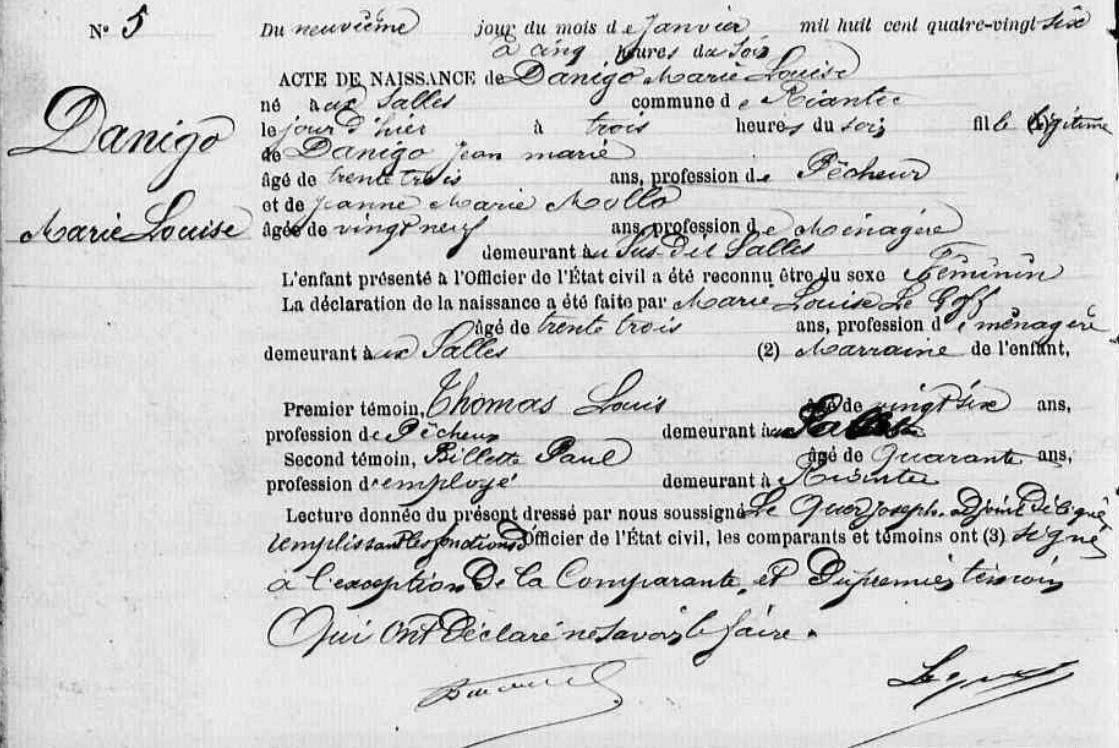 N° 5
Du neuvième jour du mois de Janvier mil huit cent quatre-vingt-six
à cinq heures du soir
ACTE DE NAISSANCE de Danigo Marie Louise
né aux Salles commune de Riantec
le jour d'hier à trois heures du soir fille légitime
de Danigo Jean marie
âgé de trente trois ans, profession de Pêcheur
et de Jeanne Marie Mollo
âgée de vingt neuf ans, profession de Ménagère
demeurant au Sus-dit Salles
Danigo
Marie Louise
L'enfant présenté à l'Officier de l'État civil a été reconnu être du sexe Féminin
La déclaration de la naissance a été faite par Marie Louise Le Goff
âgé de trente trois ans, profession de ménagère
demeurant aux Salles (2) Marraine de l'enfant,
Premier témoin, Thomas Louis âgé de vingt six ans,
profession de Pêcheur demeurant aux
Second témoin, Billette Paul âgé de Quarante ans,
profession d'employé demeurant à Riantec
Lecture donnée du présent dressé par nous soussigné Le Quer Joseph. adjoint Délégué
remplissant les fonctions d'Officier de l'État civil, les comparants et témoins ont (3) signé
à l'exception De la Comparante, et Du premier témoin
Qui ont Déclaré ne savoir le faire.
Lequer